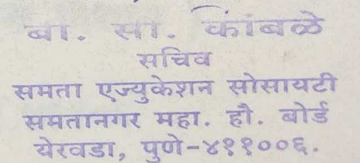 बा. सा. कांबळे
सचिव
समता एज्युकेशन सोसायटी
समतानगर महा. हौ. बोर्ड
येरवडा, पुणे-४११००६.